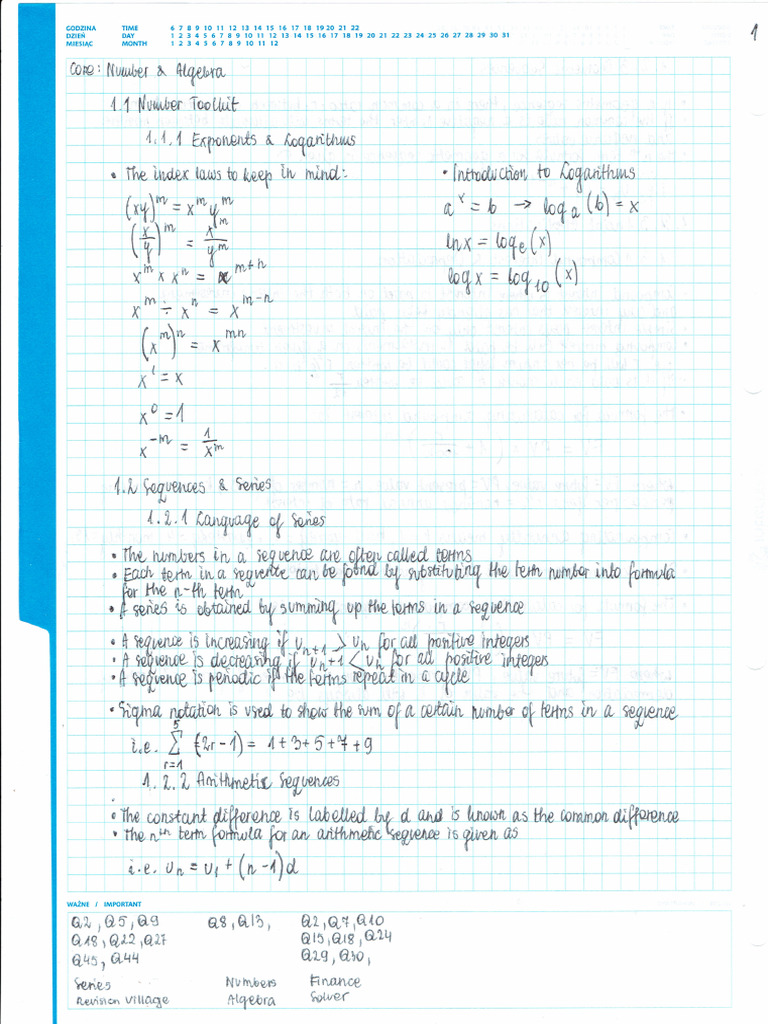 GODZINA TIME 6 7 8 9 10 11 12 13 14 15 16 17 18 19 20 21 22
DZIEŃ DAY 1 2 3 4 5 6 7 8 9 10 11 12 13 14 15 16 17 18 19 20 21 22 23 24 25 26 27 28 29 30 31
MIESIĄC MONTH 1 2 3 4 5 6 7 8 9 10 11 12
1
Core: Number & Algebra
1.1 Number Toolkit
1.1.1 Exponents & Logarithms
• The index laws to keep in mind:
(xy)^m = x^m y^m
(x/y)^m = x^m/y^m
x^m × x^n = x^(m+n)
x^m ÷ x^n = x^(m-n)
(x^m)^n = x^(mn)
x^1 = x
x^0 = 1
x^(-m) = 1/x^m
• Introduction to Logarithms
a^x = b → log_a (b) = x
ln x = log_e (x)
log x = log_10 (x)
1.2 Sequences & Series
1.2.1 Language of Series
• The numbers in a sequence are often called terms
• Each term in a sequence can be found by substituting the term number into formula
for the n-th term
• A series is obtained by summing up the terms in a sequence
• A sequence is increasing if u_n+1 > u_n for all positive integers
• A sequence is decreasing if u_n+1 < u_n for all positive integers
• A sequence is periodic if the terms repeat in a cycle
• Sigma notation is used to show the sum of a certain number of terms in a sequence
i.e. 5 Σ r=1 (2r-1) = 1+3+5+7+9
1.2.2 Arithmetic Sequences
• The constant difference is labelled by d and is known as the common difference
• The nth term formula for an arithmetic sequence is given as
i.e. u_n = u_1 + (n-1)d
WAŻNE / IMPORTANT
Q2, Q5, Q9 Q8, Q13, Q2, Q7, Q10
Q18, Q22, Q27 Q15, Q18, Q24
Q45, Q44 Q29, Q30,
Series Numbers Finance
Revision Village Algebra Solver